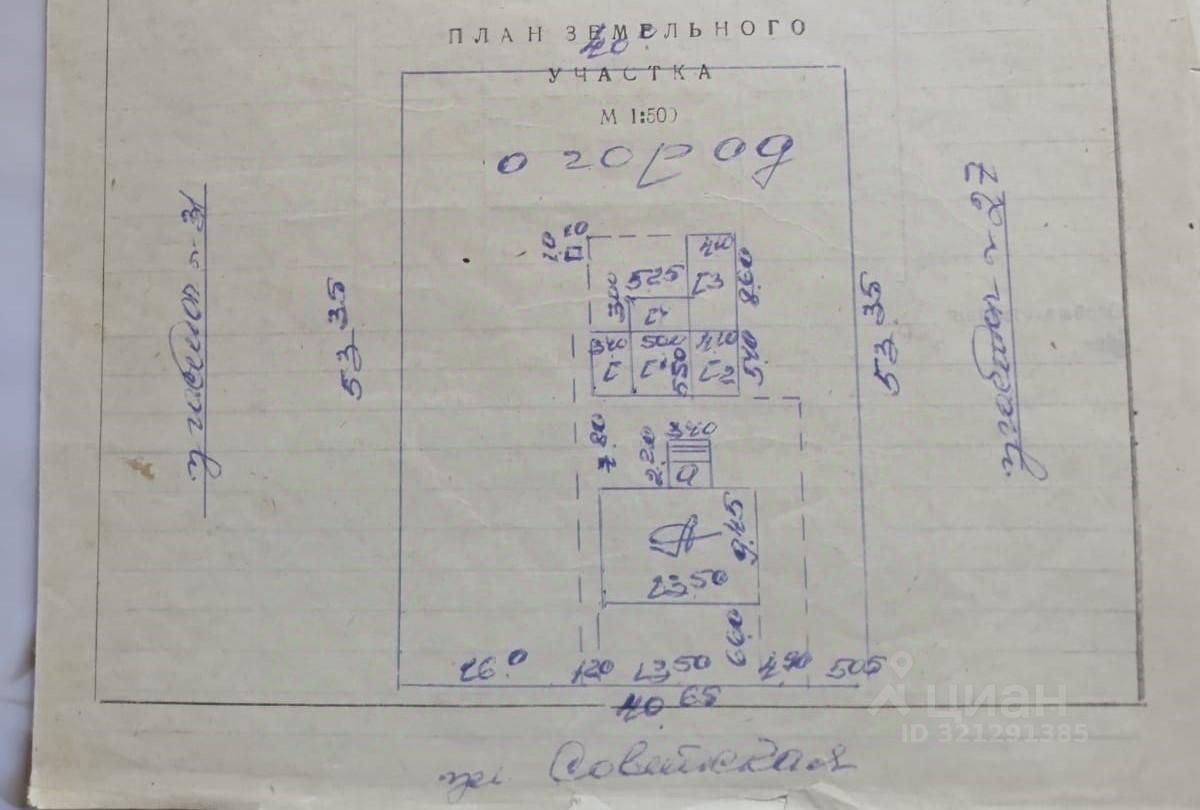 ПЛАН ЗЕМЕЛЬНОГО
40
УЧАСТКА
М 1:500
огород
участок № 31
участок № 27
53 35
53 35
1.0 1.0
П
4.10
8.60
5.25
Г3
3.00
Г4
3.40 5.00 4.10
Г Г1 5.50 Г2 5.40
7.80
3.40
2.20
а
А
9.45
13.50
6.60
16.0 1.20 13.50 4.90 5.05
40 65
ул Советская
циан
ID 321291385